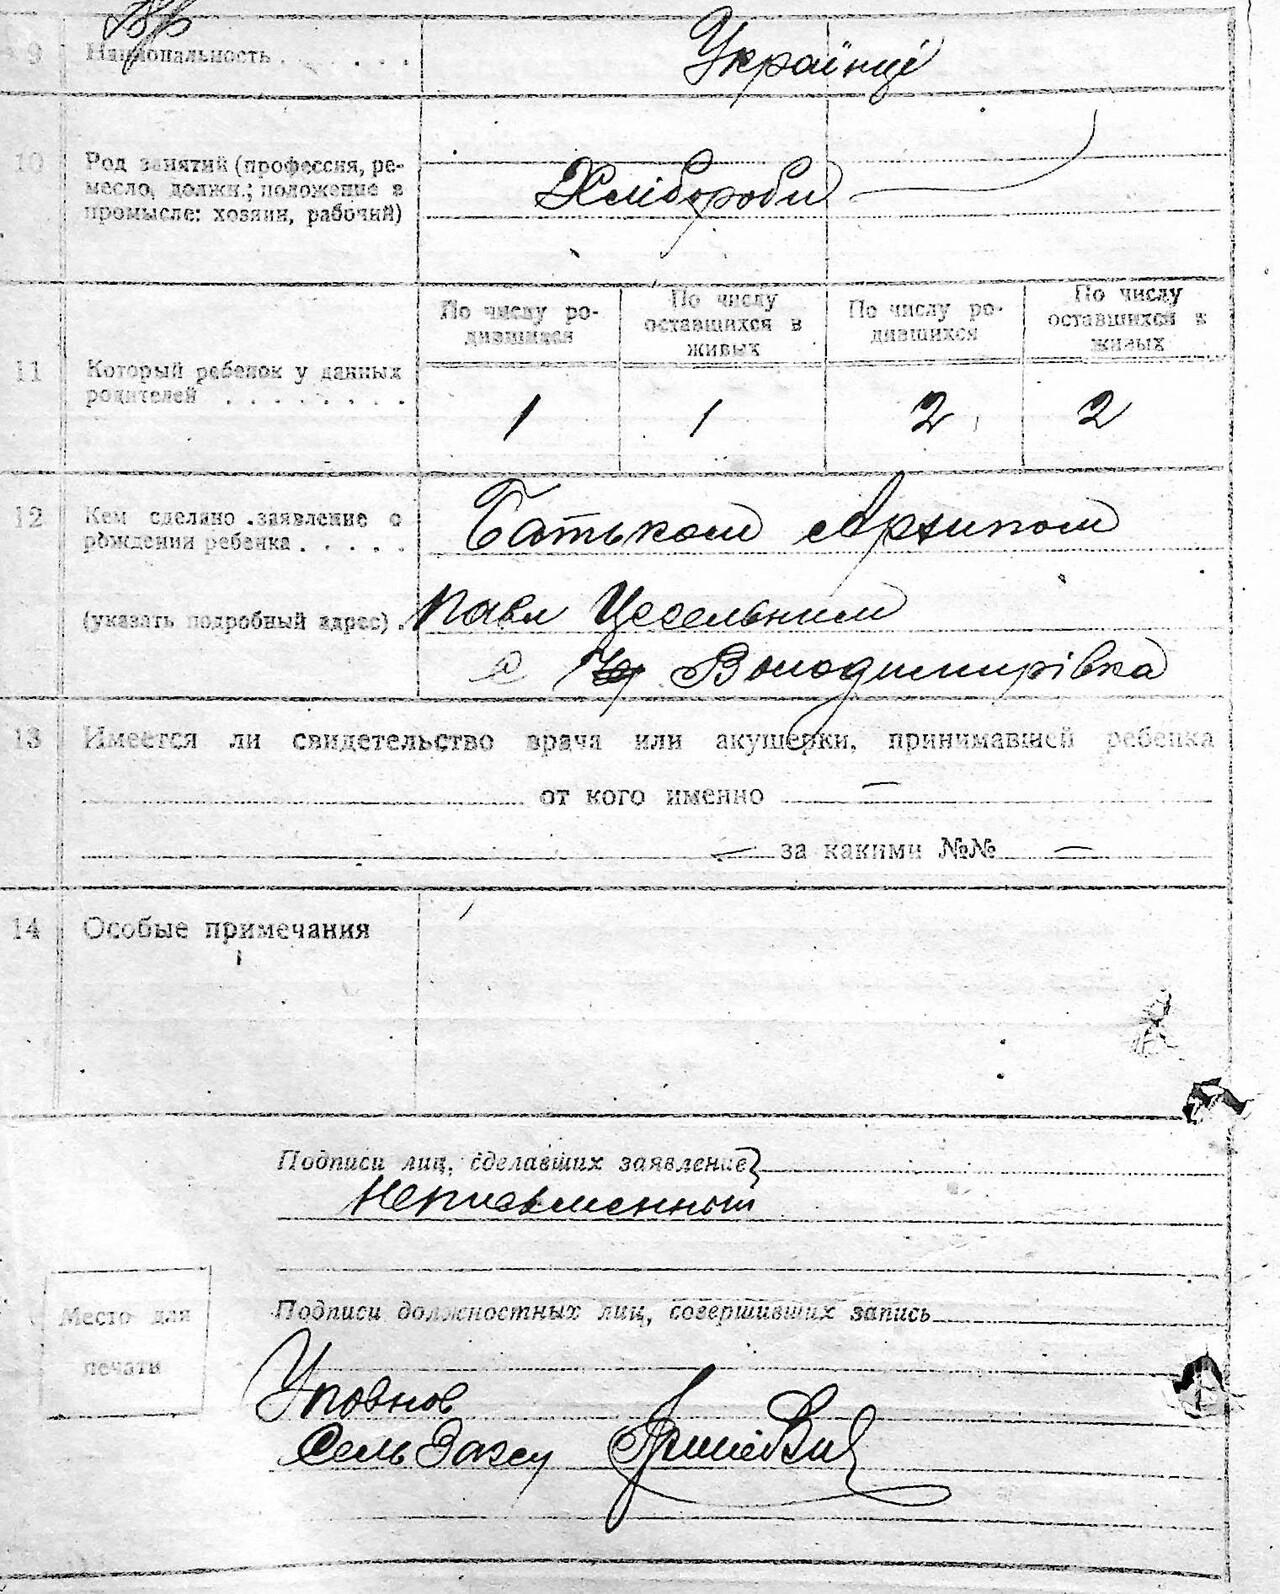 9 Национальность . . . . . Українці
10 Род занятий (профессия, ре-
месло, должн.; положение в
промысле: хозяин, рабочий)
Хлібороби
По числу ро-
дившихся
По числу
оставшихся в
живых
По числу ро-
дившихся
По числу
оставшихся в
живых
11 Который ребенок у данных
родителей . . . . . . . .
1 1 2 2
12 Кем сделано заявление о
рождении ребенка . . . . .
Батьком Архипом
(указать подробный адрес) .
Павл
с Володимирівка
13 Имеется ли свидетельство врача или акушерки, принимавшей ребенка
от кого именно —
— за какими №№ —
14 Особые примечания
Подписи лиц, сделавших заявление
Неписьменный
Подписи должностных лиц, совершивших запись
Место для
печати
Уповнов
Сель